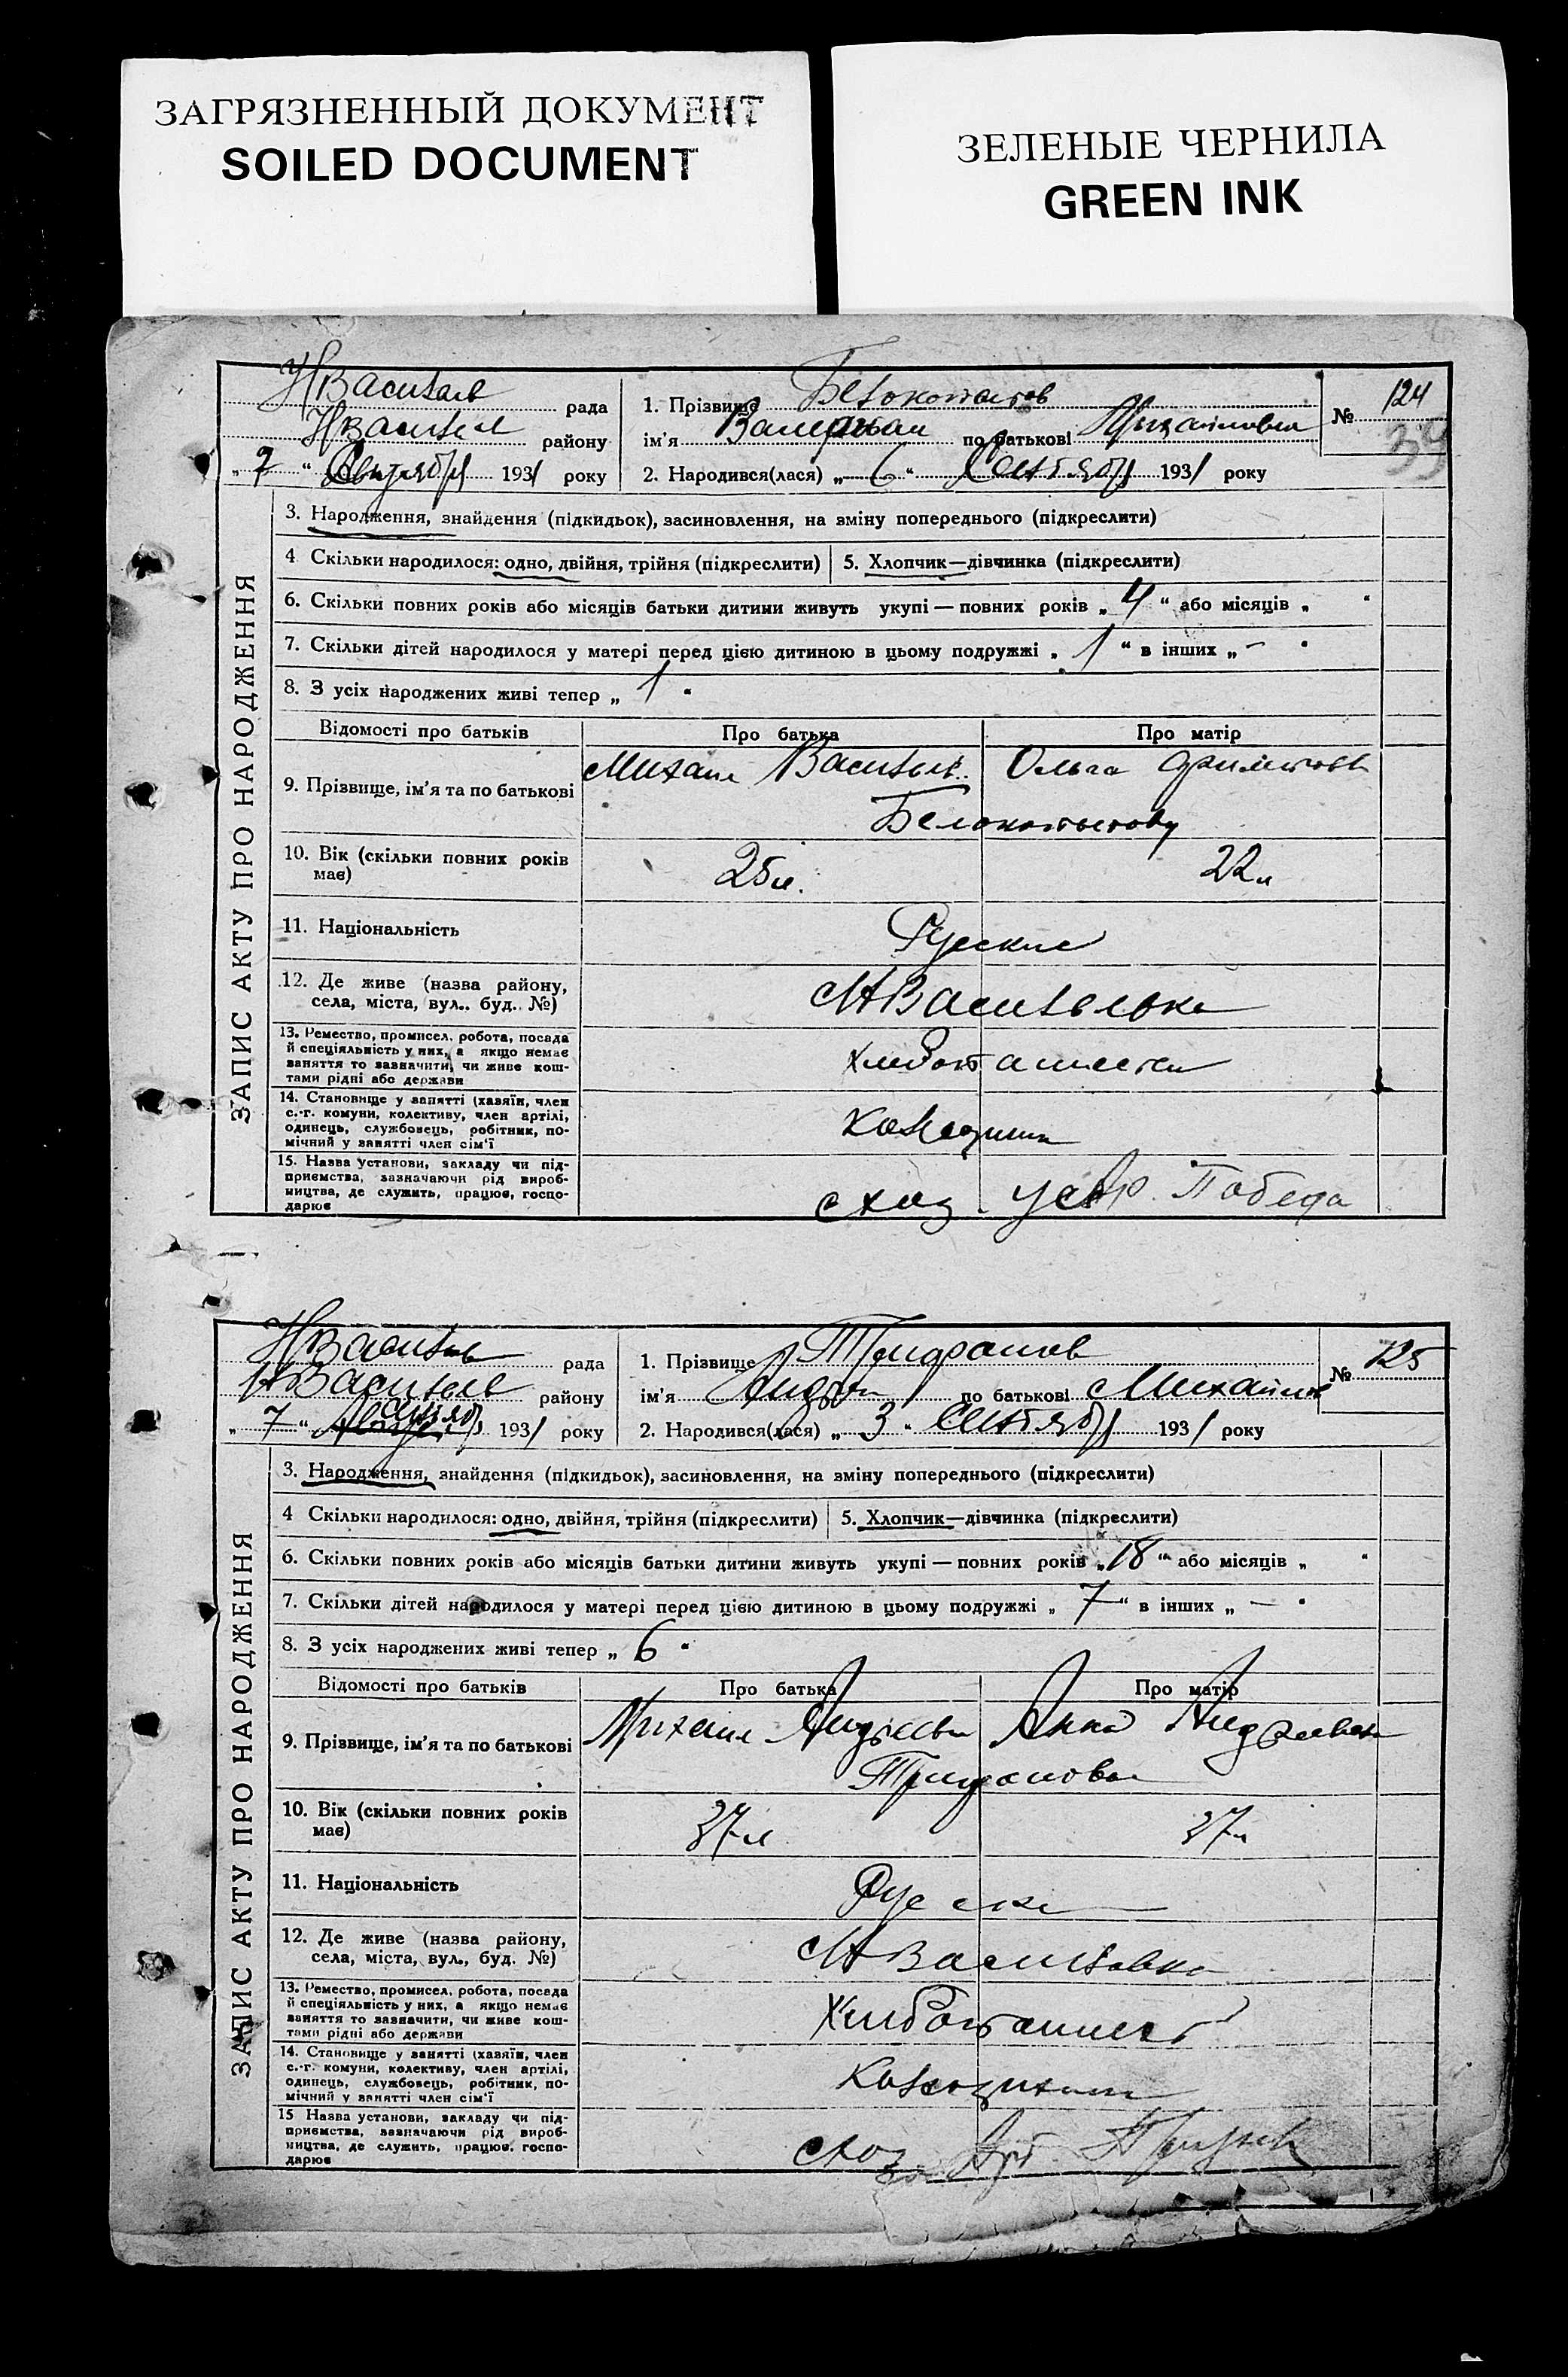 ЗАГРЯЗНЕННЫЙ ДОКУМЕНТ
SOILED DOCUMENT
ЗЕЛЕНЫЕ ЧЕРНИЛА
GREEN INK
НВасильев рада
НВасильев району
„ 7 “ Сентября 1931 року
1. Прізвище Белокопытов
ім'я Валериан по батькові Михайлович
2. Народився(лася) „ 6 “ Сентября 1931 року
№ 124
39
ЗАПИС АКТУ ПРО НАРОДЖЕННЯ
3. Народження, знайдення (підкидьок), засиновлення, на зміну попереднього (підкреслити)
4 Скільки народилося: одно, двійня, трійня (підкреслити) 5. Хлопчик—дівчинка (підкреслити)
6. Скільки повних років або місяців батьки дитини живуть укупі — повних років „ 4 “ або місяців „ “
7. Скільки дітей народилося у матері перед цією дитиною в цьому подружжі „ 1 “ в інших „ – “
8. З усіх народжених живі тепер „ 1 “
Відомості про батьків Про батька Про матір
9. Прізвище, ім'я та по батькові Михаил Васильев. Ольга
Белокопытовы
10. Вік (скільки повних років
має) 25 л. 22 л
11. Національність Русские
12. Де живе (назва району,
села, міста, вул.. буд. №) НВасильевка
13. Ремество, промисел, робота, посада
й спеціяльність у них, а якщо немає
заняття то зазначити, чи живе кош-
тами рідні або держави
Хлебопашество
14. Становище у занятті (хазяїн, член
с.-г. комуни, колективу, член артілі,
одинець, службовець, робітник, по-
мічний у занятті член сім'ї
Колхозники
15. Назва установи, закладу чи під-
приємства, зазначаючи рід вироб-
ництва, де служить, працює, госпо-
дарює
схоз уст Ар. Победа
НВасильев рада
НВасильев району
„ 7 “ Сентяб 1931 року
1. Прізвище Трифонов
ім'я Андрей по батькові Михайлов
2. Народився(лася) „ 3 “ Сентября 1931 року
№ 125
ЗАПИС АКТУ ПРО НАРОДЖЕННЯ
3. Народження, знайдення (підкидьок), засиновлення, на зміну попереднього (підкреслити)
4 Скільки народилося: одно, двійня, трійня (підкреслити) 5. Хлопчик—дівчинка (підкреслити)
6. Скільки повних років або місяців батьки дитини живуть укупі — повних років „ 18 “ або місяців „ “
7. Скільки дітей народилося у матері перед цією дитиною в цьому подружжі „ 7 “ в інших „ — “
8. З усіх народжених живі тепер „ 6 “
Відомості про батьків Про батька Про матір
9. Прізвище, ім'я та по батькові Михаил Андреев Анна Андреевна
Трифонова
10. Вік (скільки повних років
має) 37 л 37 л
11. Національність Русские
12. Де живе (назва району,
села, міста, вул., буд. №) НВасильевка
13. Ремество, промисел, робота, посада
й спеціяльність у них, а якщо немає
заняття то зазначити, чи живе кош-
тами рідні або держави
Хлебопашест
14. Становище у занятті (хазяїн, член
с.-г. комуни, колективу, член артілі,
одинець, службовець, робітник, по-
мічний у занятті член сім'ї
Колхозники
15 Назва установи, закладу чи під-
приємства, зазначаючи рід вироб-
ництва, де служить, працює, госпо-
дарює
схоз Арт